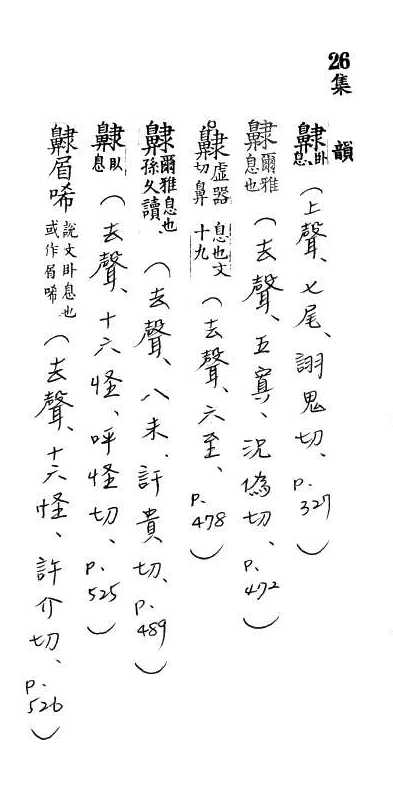 26集韻
齂卧息、(上聲、七尾、詡鬼切、p.327)
齂爾雅息也(去聲、五寘、況偽切、p.472)
齂虛器切鼻息也文十九(去聲、六至、p.478)
齂爾雅息也孫久讀、(去聲、八未、許貴切、p.489)
齂臥息(去聲、十六怪、呼怪切、p.525)
齂㞒唏說文卧息也或作㞒唏(去聲、十六怪、許介切、p.526)